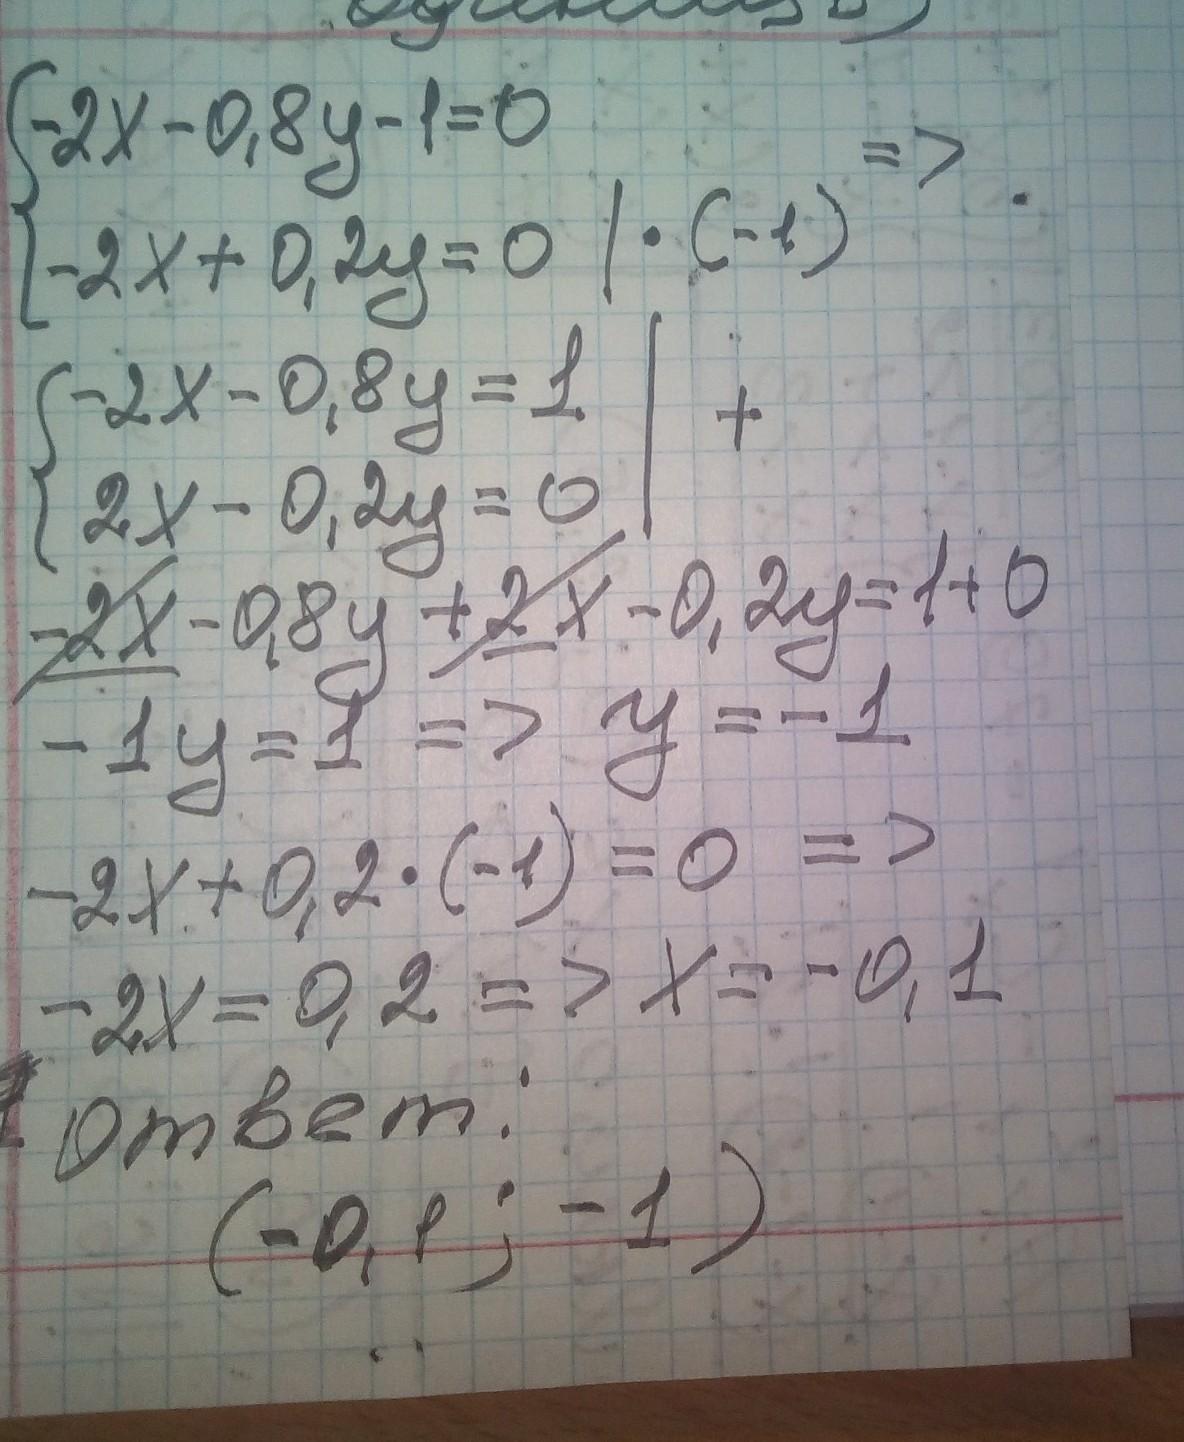 -2x-0,8y-1=0
-2x+0,2y=0 |·(-1) =>
-2x-0,8y=1
2x-0,2y=0 | +
-2x-0,8y+2x-0,2y=1+0
-1y=1 => y=-1
-2x+0,2·(-1)=0 =>
-2x=0,2 => x=-0,1
Ответ:
(-0,1; -1)